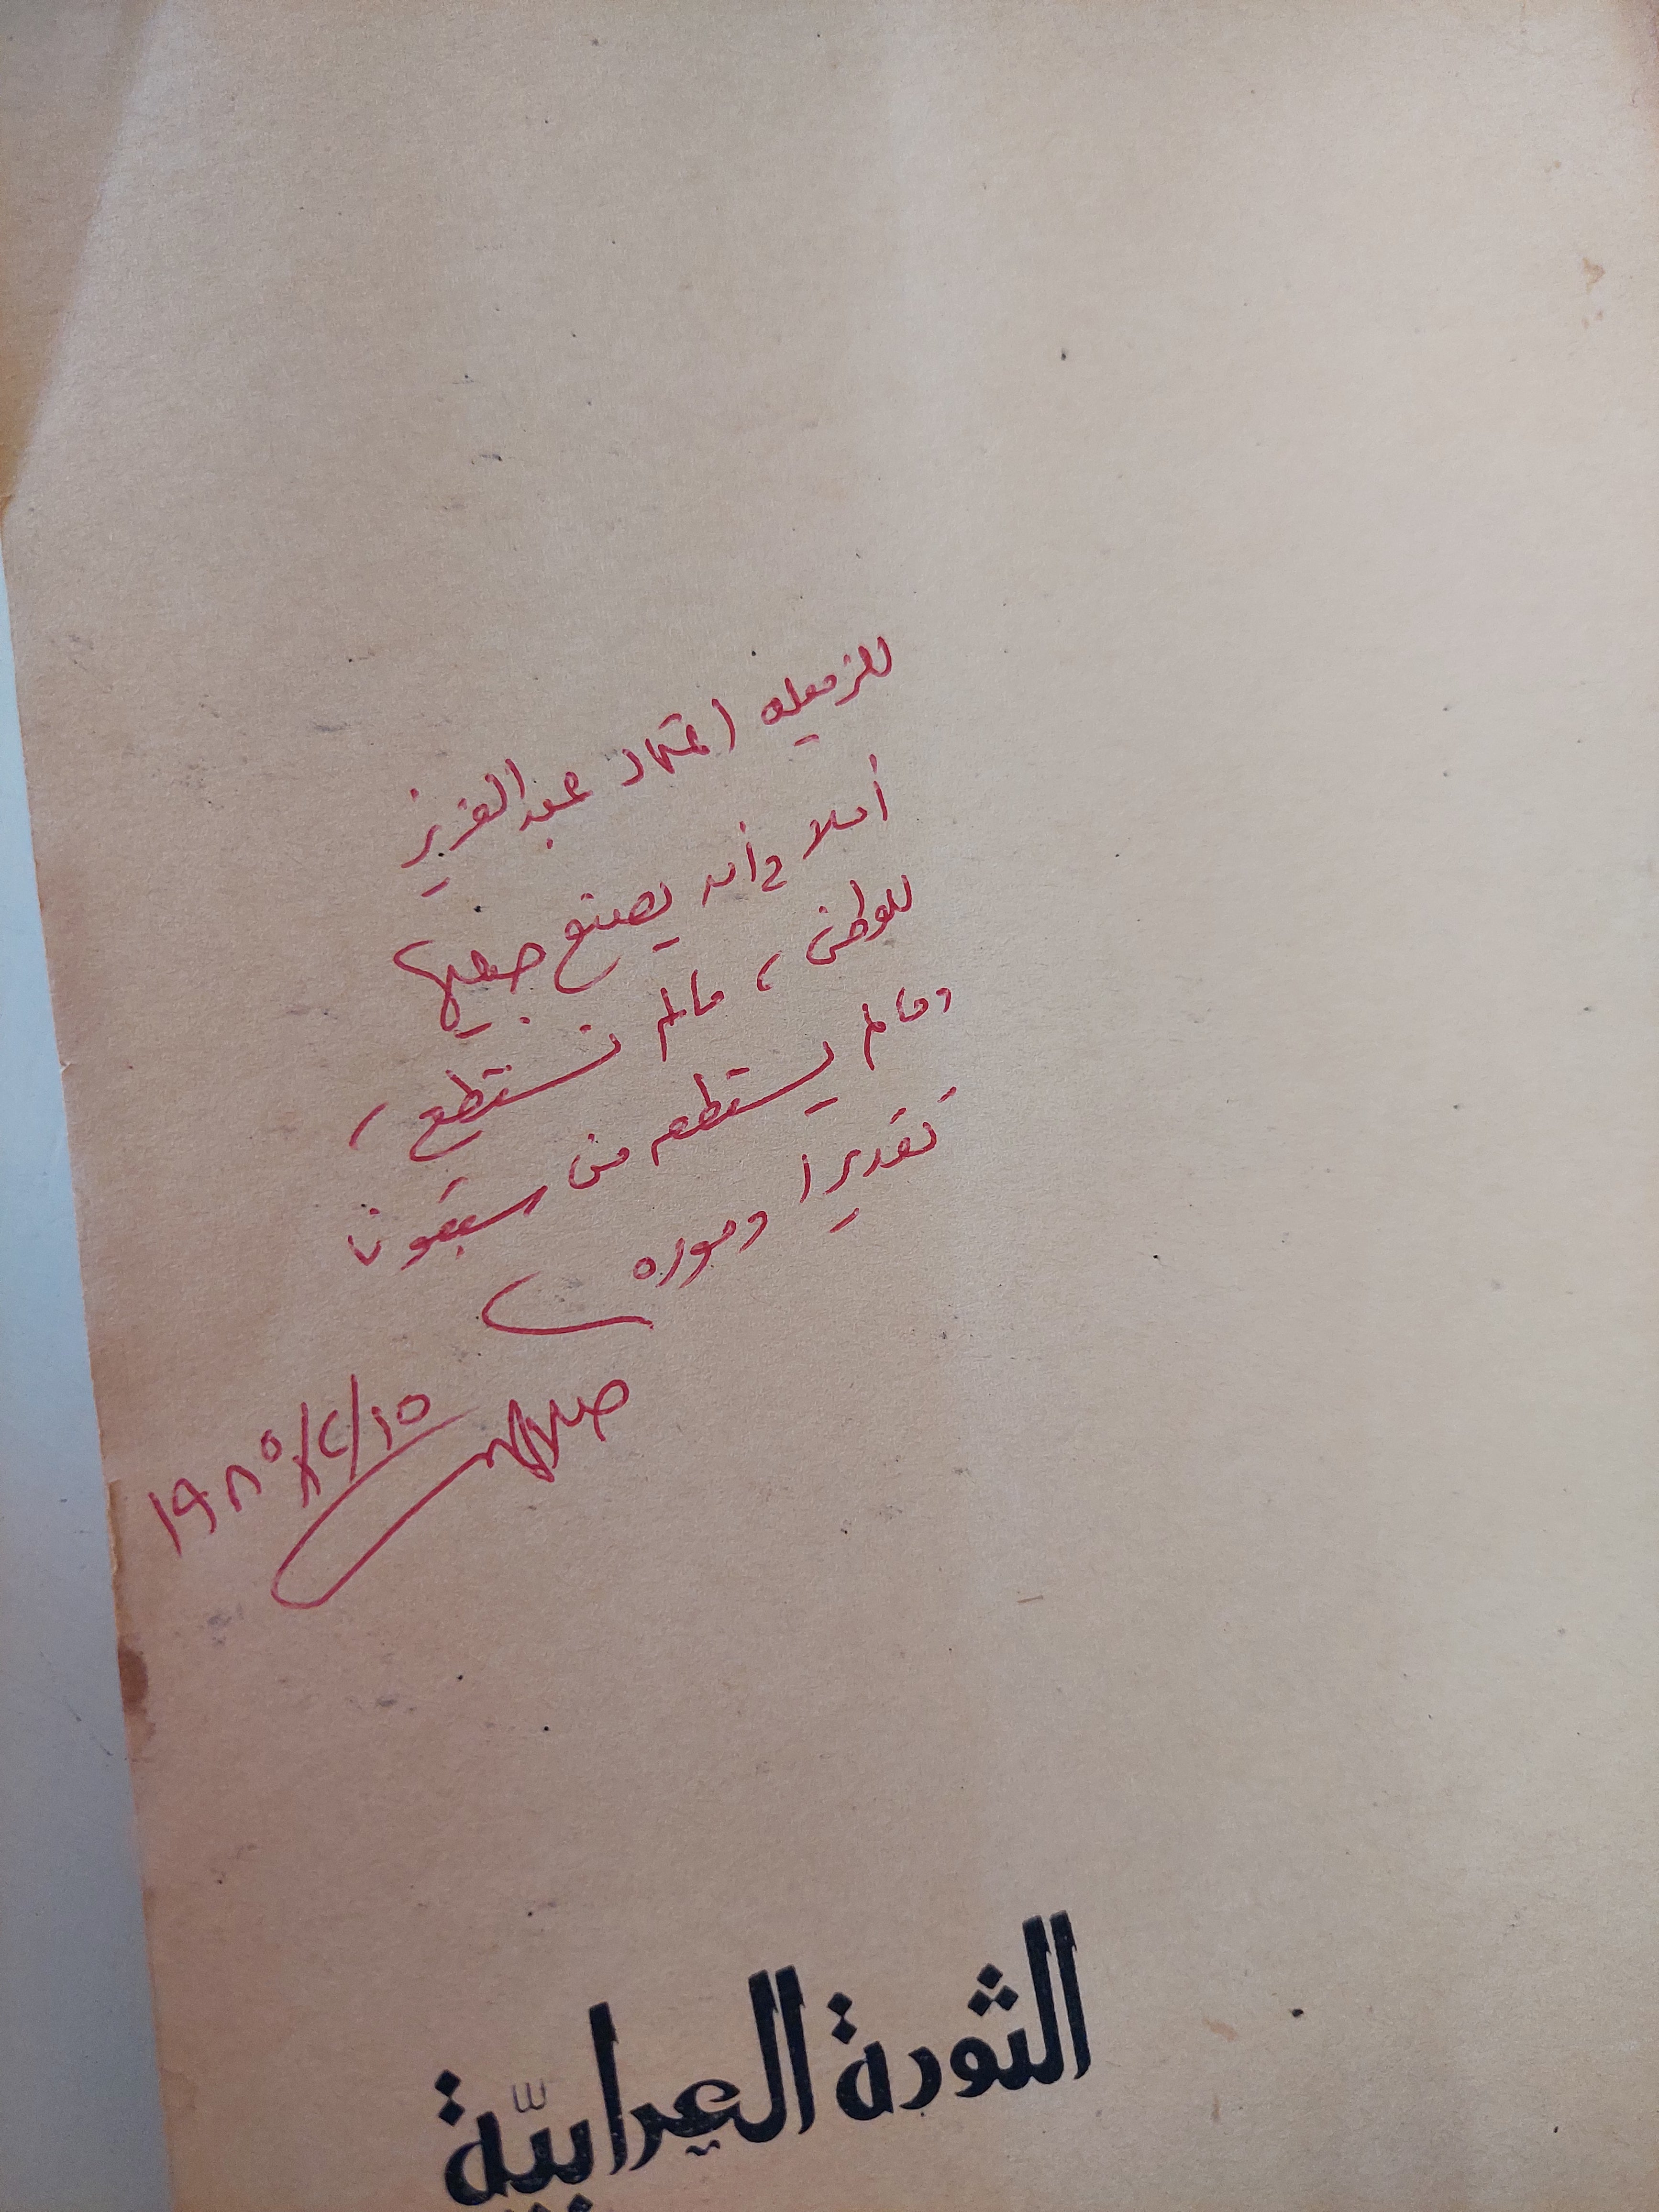 للزميله اعتماد عبد العزيز
أملا في أن يصنع جيلها
للوطن ، مالم نستطع ،
ومالم يستطع من سبقونا
تقديرا وموده
صلاح عيسى
١٩٨٥/٢/١٥
الثورة العرابيّة